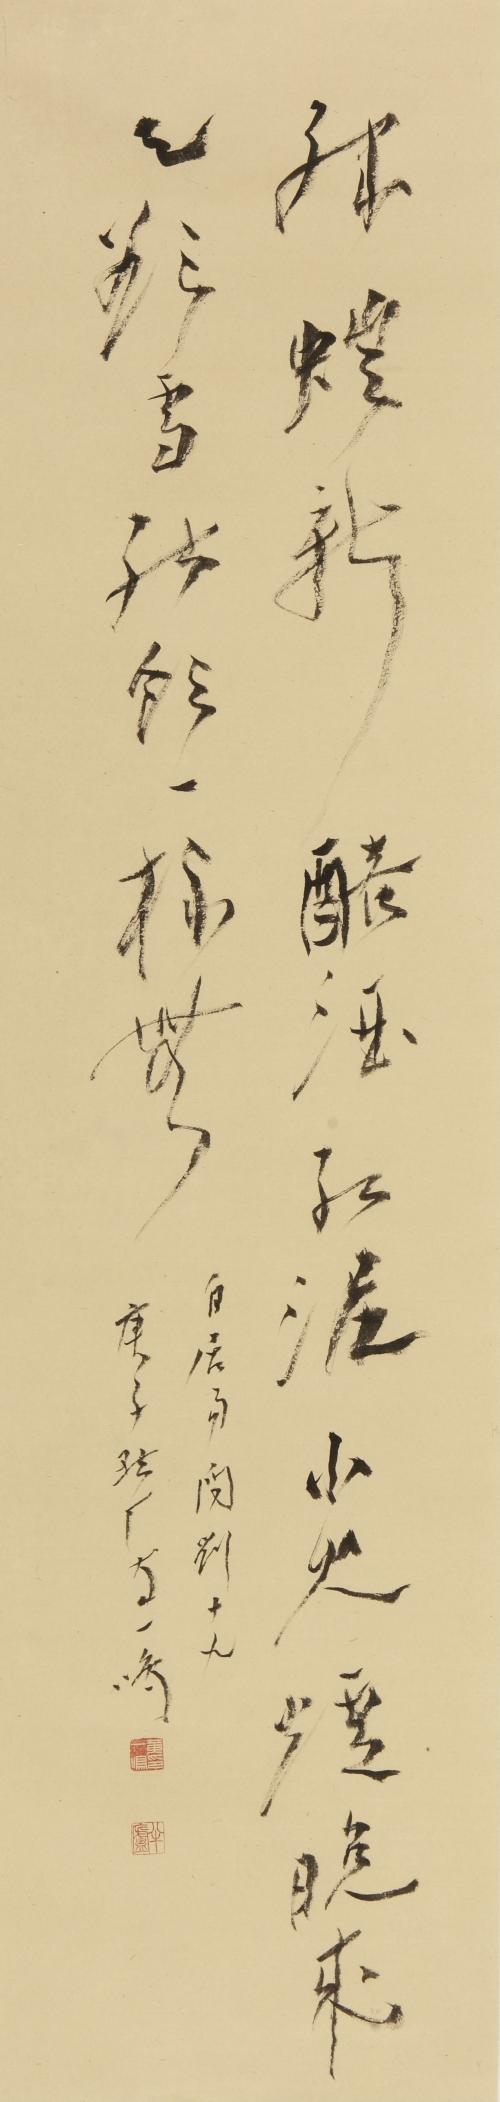 綠螘新醅酒紅泥小火爐晚來
天欲雪能飲一杯無
白居易問劉十九
庚子